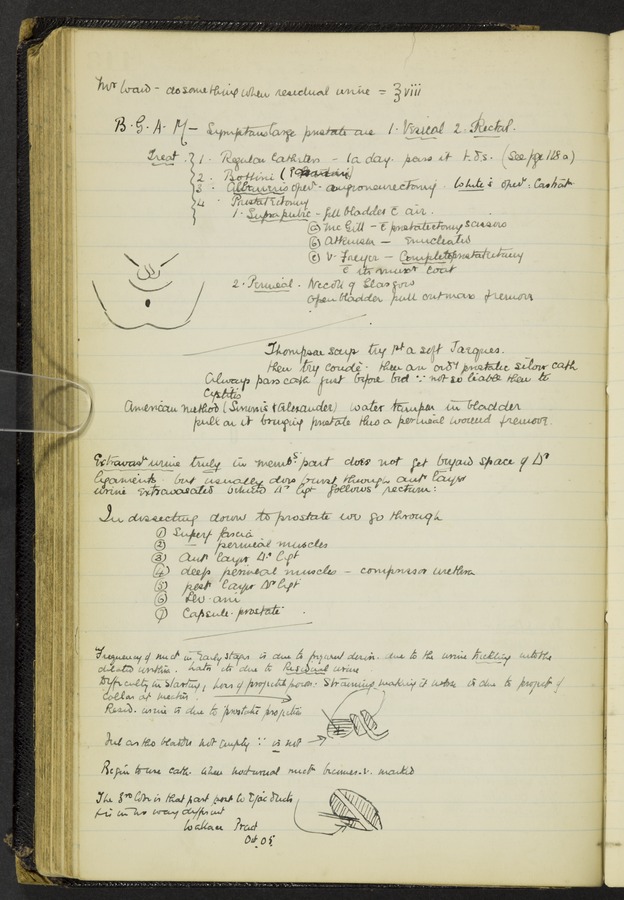 Mr Ward - do something when residual urine = ℥viii
B.G.A.M - Symptoms large prostate are 1. Vesical 2. Rectal.
Treat. 1. Regular Catheter - 1 a day. pass it t.d.s. (See pge 128a)
2. Bottini (
3. oper. angioneurectomy. White's oper. Castrat
4. Prostatectomy
1. Suprapubic - fill bladder c̄ air.
(a) McGill - c̄ prostatectomy scissors
(b) Atkinson - Enucleates
(c) v. Freyer - Complete prostatectomy
c̄ its coat
2. Perineal. Nicoll of Glasgow
open bladder pull out mass & remove
Thompson says try 1st a soft Jaques.
then try coudé. then an ordy prostatic silver cath
Always pass cath just before bed ∵ not so liable then to
Cystitis
American method (Simms & Alexander) water tampon in bladder
pull on it bringing prostate thro a perineal wound & remove.
Extravast urine truly in membs part does not get beyond space of Δr
ligaments. but usually does burst through ant layer
urine extravasated behind Δr ligt follows rectum:
In dissecting down to prostate we go through
(1) Superf fascia
(2) — perineal muscles
(3) Antr layer Δr ligt
(4) deep perineal muscles - compressor urethra
(5) post layer Δr ligt
(6) Lev. ani
(7) Capsule. prostate
Frequency of mict in Early stages is due to due to the urine trickling into the
dilated urethra. Later its due to Residual urine
Difficulty in starting, loss of projectile power. Straining making it worse is due to project of
Collar at meatus
Resid. urine is due to prostatic projection
but as tho bladder not empty ∵ is not →
Begin to use cath. when nocturnal mict becomes v. marked
The 3rd lobe is that part post to Ejac ducts
& is in no way different
Wallace Pract
Oct. 05